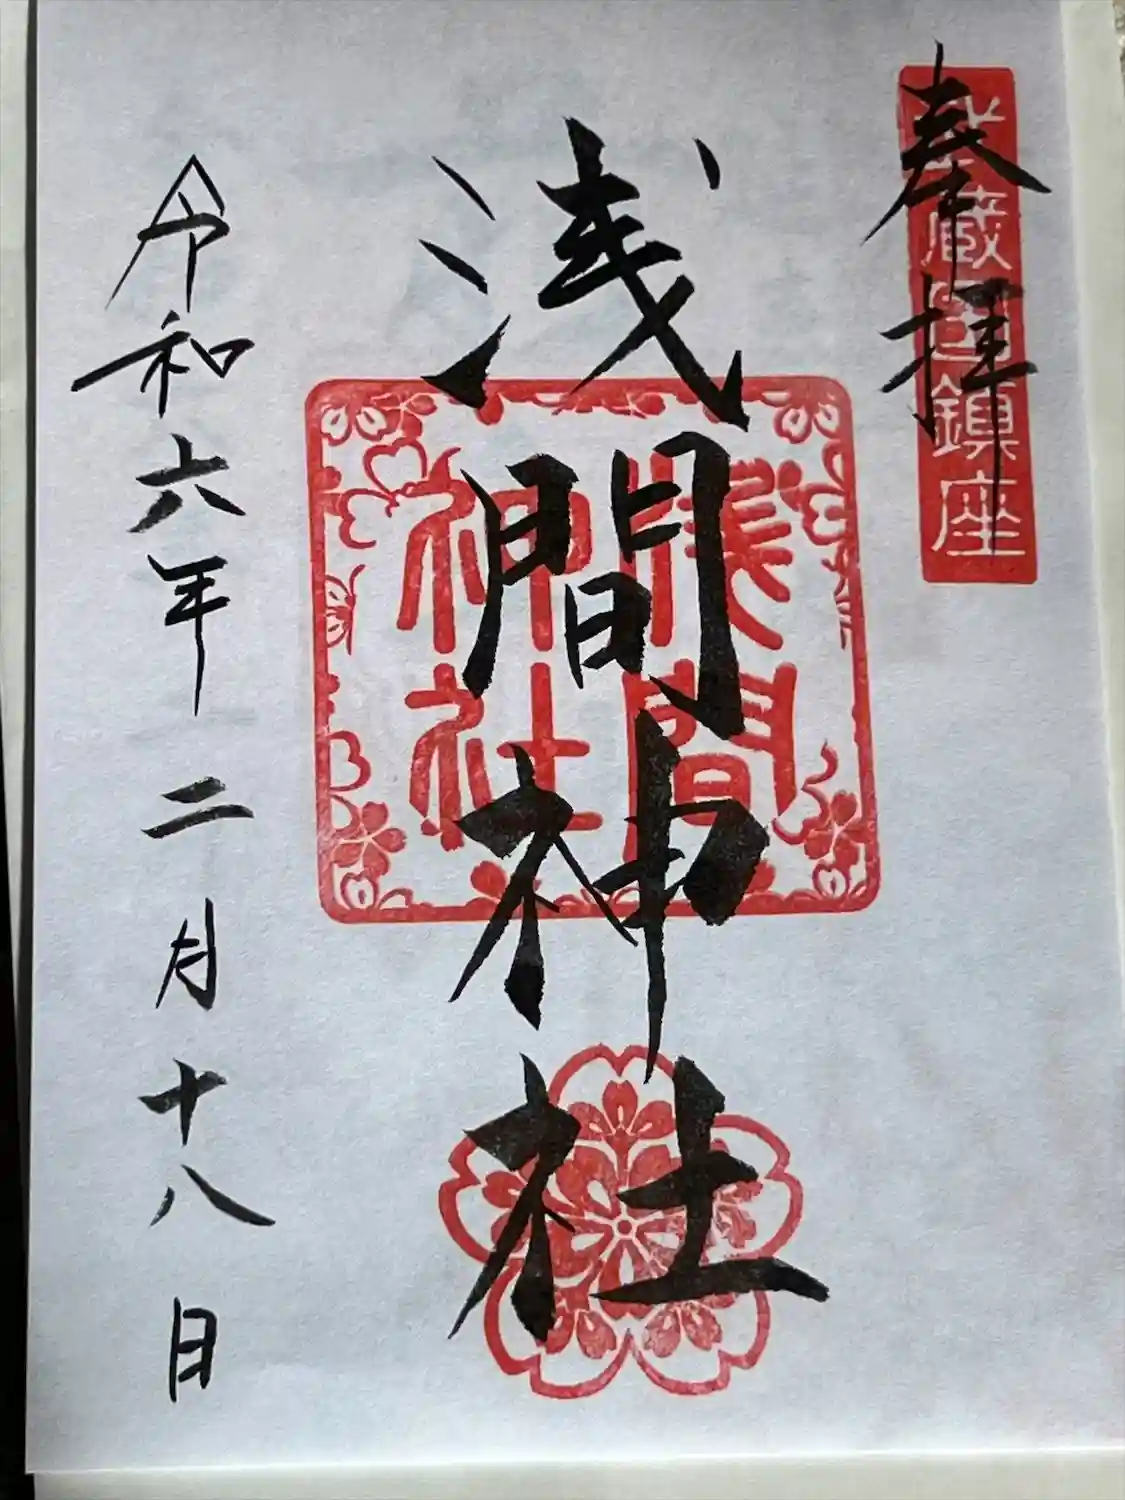 奉拝
武蔵国鎮座
浅間神社
浅間
神社
令和六年二月十八日